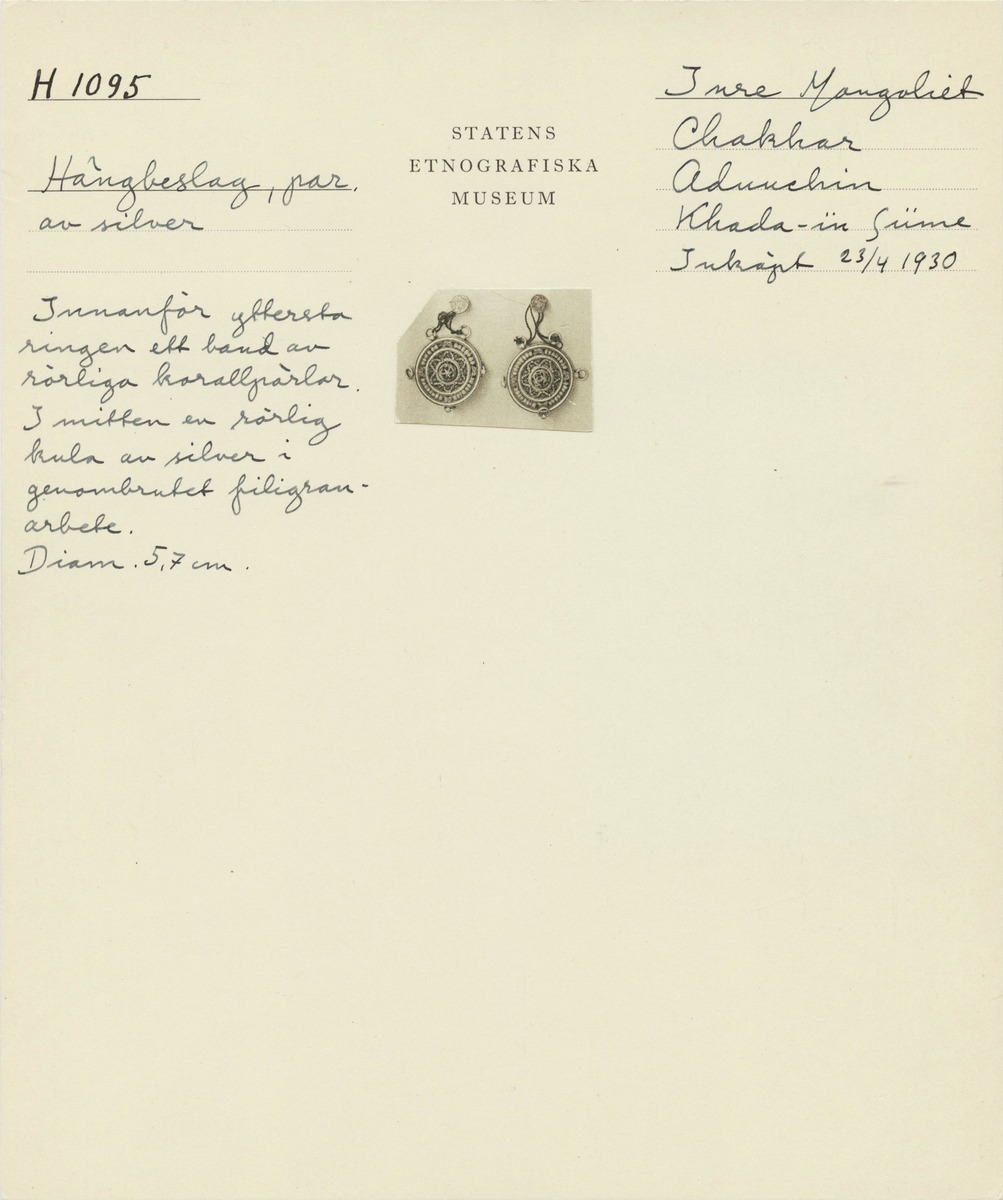 H 1095
Hängbeslag, par.
av silver
Innanför yttersta
ringen ett band av
rörliga korallpärlor.
I mitten en rörlig
kula av silver i
genombrutet filigran-
arbete.
Diam. 5,7 cm.
STATENS
ETNOGRAFISKA
MUSEUM
Inre Mongoliet
Chakhar
Aduuchin
Khada-in Süme
Inköpt 23/4 1930